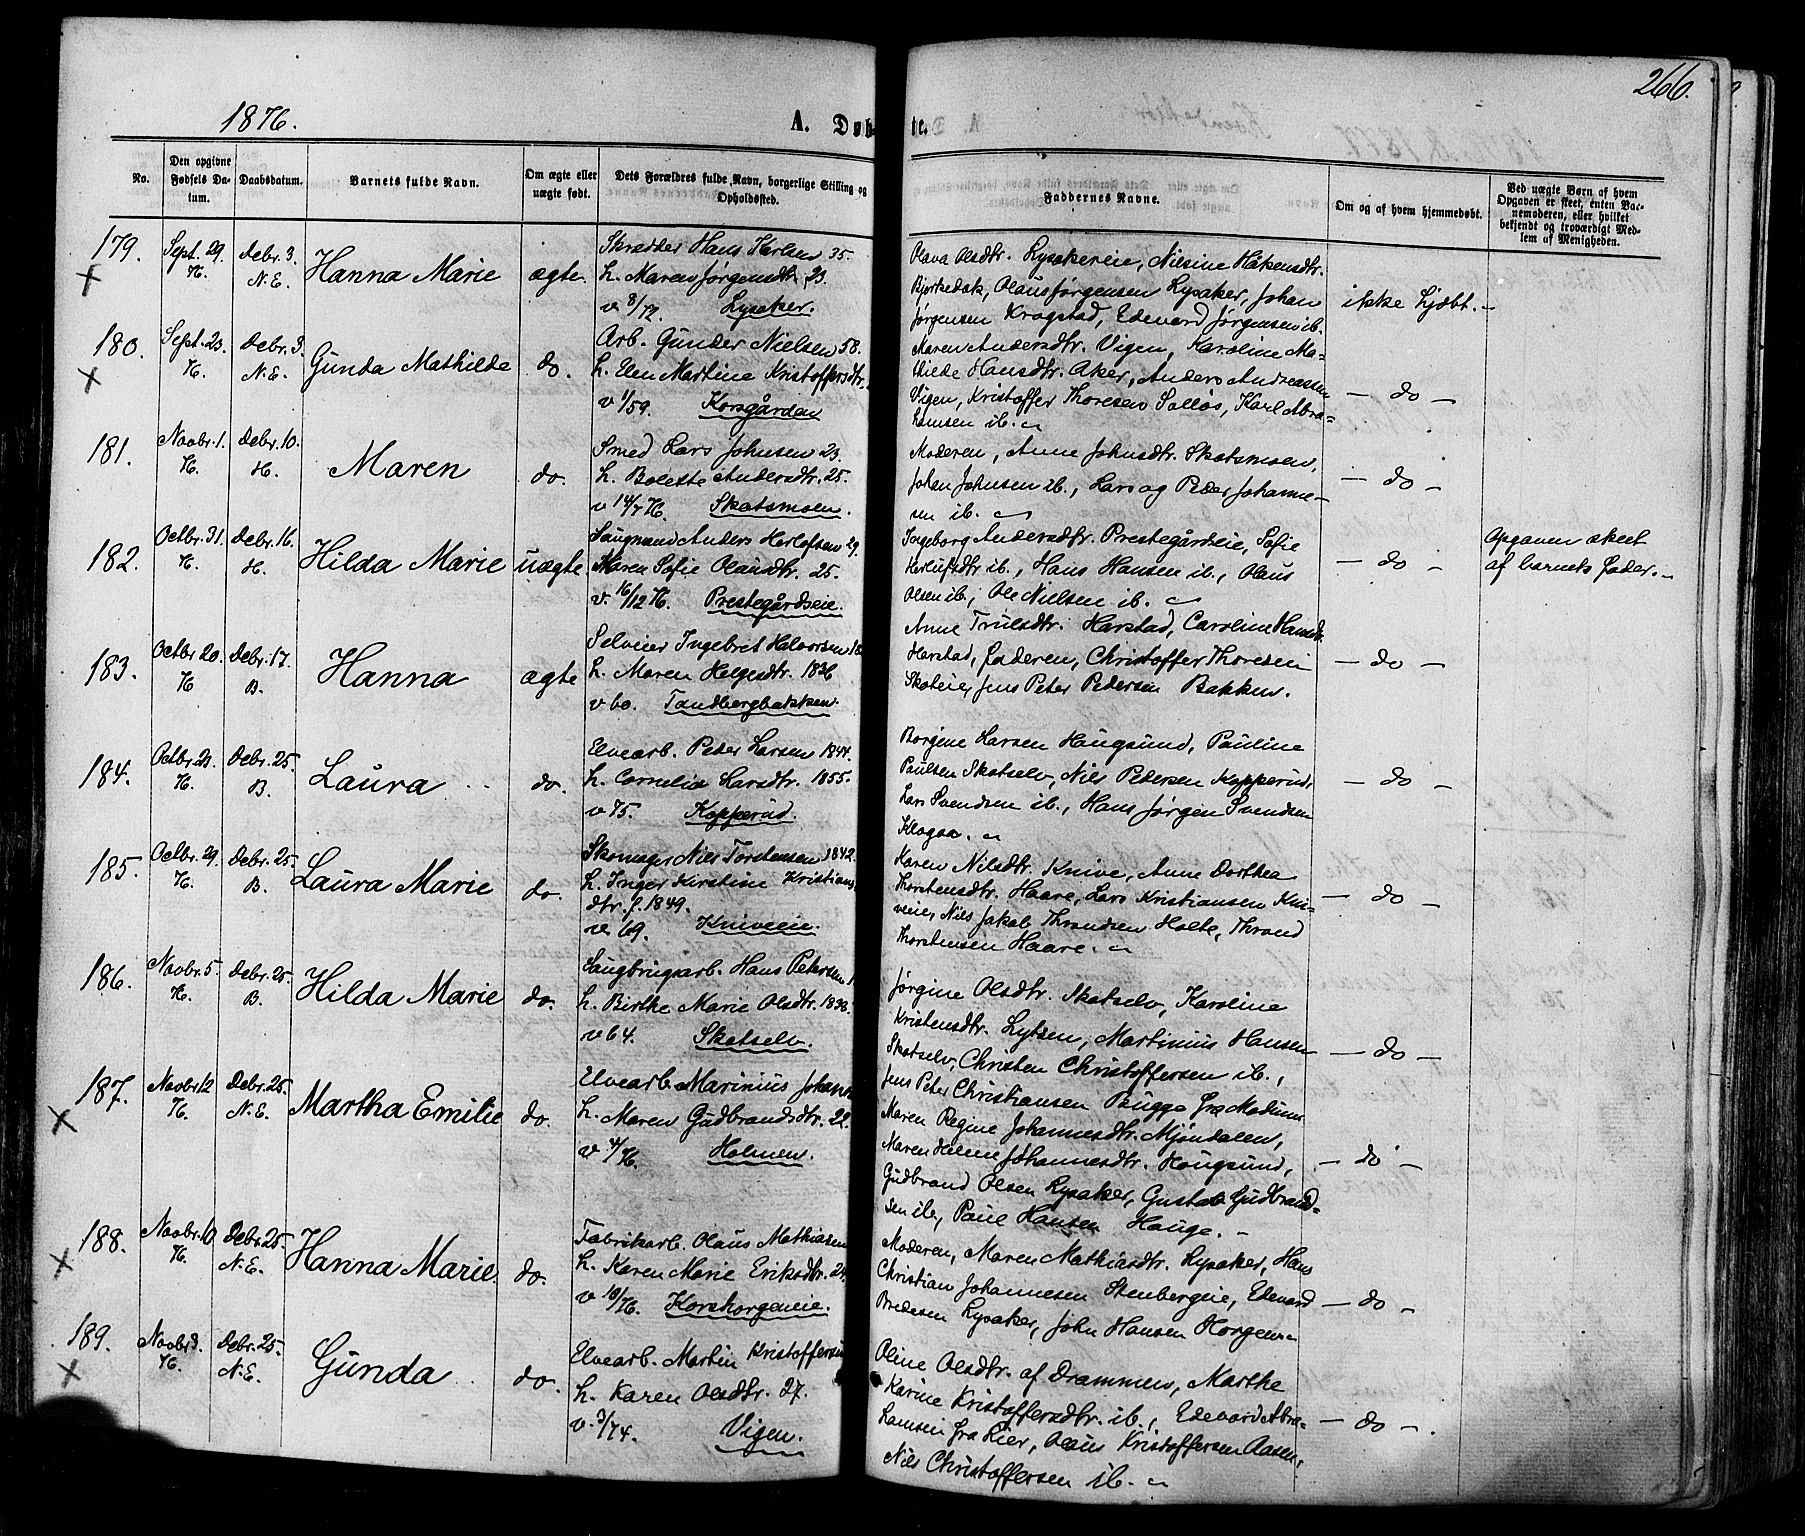 266.
1876.
A. Døbte.
No.
Den opgivne Fødsels Datum.
Daabsdatum.
Barnets fulde Navn.
Om ægte eller uægte født.
Dets Forældres fulde Navn, borgerlige Stilling og Opholdssted.
Faddernes Navne.
Om og af hvem hjemmedøbt.
Ved uægte Børn af hvem Opgaven er skeet, enten Barnemoderen, eller hvilket bekjendt og troværdigt Medlem af Menigheden.
179. Sept. 29. 76. Debr. 3. N.E. Hanna Marie ægte
Skrædder Hans Karlsen 35.
h. Maren Jørgensdtr. 23.
v 8/72. Lysaker.
Olava Olsdtr. Lysakereie, Nilsine Håkensdtr.
Bjerkedok, Olaus Jørgensen Lysaker, Johan
Jørgensen Krogstad, Edevard Jørgensen ib.
ikke hjdbt. -
180. Sept. 23. 76. Debr. 3. N.E. Gunda Mathilde do.
Arb. Gunder Nielsen 58.
h. Elen Martine Kristoffersdtr.
v 1/59. Korsgården
Maren Andersdtr. Vigen, Karoline Ma-
thilde Hansdtr. Aker, Anders Andreassen
Vigen, Kristoffer Thoresen Solløs, Karl Abra-
hamsen ib.
- do -
181. Novbr. 1. 76. Debr. 10. H. Maren do.
Smed Lars Johnsen 23.
h. Bolette Andersdtr. 25.
v 14/7 76. Skotsmoen.
Moderen, Anne Johnsdtr. Skotsmoen,
Johan Johnsen ib., Lars og Peder Johanne-
sen ib.
- do -
182. Octbr. 31. 76. Debr. 16. H. Hilda Marie uægte
Saugmand Anders Herlofsen 29.
Maren Sofie Olausdtr. 25.
v. 16/12 76. Prestegårdseie.
Ingeborg Andersdtr. Prestegårdseie, Sofie
Herlufsdtr ib., Hans Hansen ib., Olaus
Olsen ib., Ole Nielsen ib.
- do -
Opgaven skeet
af barnets fader. -
183. Octbr 20. 76 Debr. 17. B. Hanna ægte
Selveier Ingebret Halvorsen 18
h. Maren Helgesdtr. 1836
v 60. Tandbergbakken.
Anne Trulsdtr. Harstad, Caroline Hansdtr
Harstad, faderen, Christoffer Thoresen
Skoteie, Jens Peter Pedersen Bakken.
- do -
184. Octbr. 23. 76. Debr. 25. B. Laura do.
Elvearb. Peder Larsen 1844.
h. Cornelia Larsdtr. 1855.
v 75. Kopperud.
Borgine Larsen Haugsund, Pauline
Paulsen Skotselv, Nils Pedersen Kopperud,
Lars Svendsen ib., Hans Jørgen Svendsen
- do -
185. Octbr. 29. 76. Debr. 25. B. Laura Marie do.
Skomager Nils Torstensen 1842.
h. Inger Kirstine Kristians
dtr. f. 1849.
v 69. Kniveeie.
Karen Nilsdtr. Knive, Anne Dorthea
Thorstensdtr. Haare, Lars Kristiansen Kni-
veeie, Nils Jakob Throndsen Holte, Thrond
Thorstensen Haare.
- do -
186. Novbr. 5. 76. Debr. 25. B. Hilda Marie do.
Saugbrugsarb. Hans Petersen 1
h. Birthe Marie Olsdtr. 1838.
v 64. Skotselv.
Jørgine Olsdtr. Skotselv, Karoline
Kristensdtr. Lytsen, Martinius Hansen
Skotselv, Christen Christoffersen ib.,
Jens Peter Christiansen Bugge fra Modum
- do -
187. Novbr. 12 76. Debr. 25. N.E. Martha Emilie do.
Elvearb. Marinius Johann
h. Maren Gudbrandsdtr. 22.
v 4/76. Holmen.
Maren Regine Johannesdtr. Mjøndalen,
Maren Helene Johannesdtr. Hougsund,
Gudbrand Olsen Lysaker, Gustav Gudbrand-
sen ib., Paul Hansen Hauge. -
- do -
188. Novbr. 10 76. Debr. 25. N.E. Hanna Marie. do.
Fabrikarb. Olaus Mathiasen
h. Karen Marie Eriksdtr. 24.
v 10/76. Korshorgeneie.
Moderen, Maren Mathiasdtr. Lysaker, Hans
Christian Johannesen Stenbergeie, Edevard
Bredesen Lysaker, John Hansen Horgen.
- do -
189. Novbr. 3. 76. Debr. 25. N.E. Gunda do.
Elvearb. Martin Kristoffersen
h. Karen Olsdtr. 27.
v. 3/74. Vigen.
Oline Olsdtr. af Drammen, Marthe
Karine Kristoffersdtr. ib., Edevard Abra-
hamsen fra Lier, Olaus Kristoffersen Aasen,
Nils Christoffersen ib.
- do -.